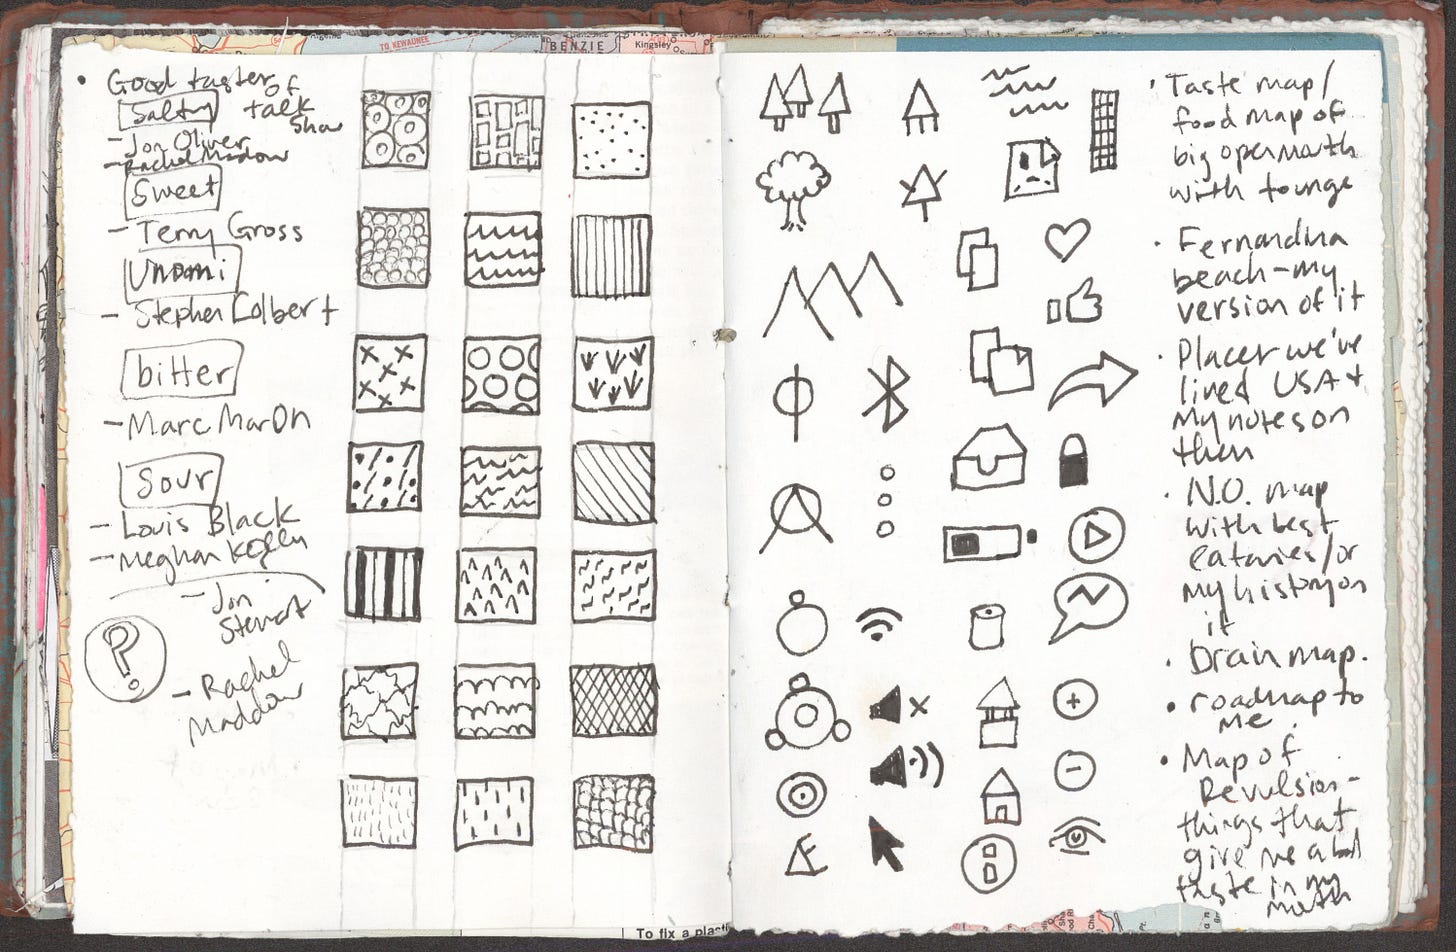 TO KEWAUNEE
BENZIE
Kingsley
• Good taster of
Salty talk
show
- Jon Oliver
- Rachel Madow
Sweet
- Terry Gross
Unami
- Stephen Colbert
bitter
- Marc MarOn
Sour
- Louis Black
- Meghan Kelly
- Jon
Stewart
?
- Rachel
Maddow
• Taste map/
food map of
big open mouth
with tounge
• Fernandina
beach - my
version of it
• Places we've
lived USA +
my notes on
them
• N.O. map
with best
eataries/or
my history on
it
• Brain map.
• roadmap to
me.
• Map of
Revulsion -
things that
give me a bad
taste in my
mouth
To fix a plasti